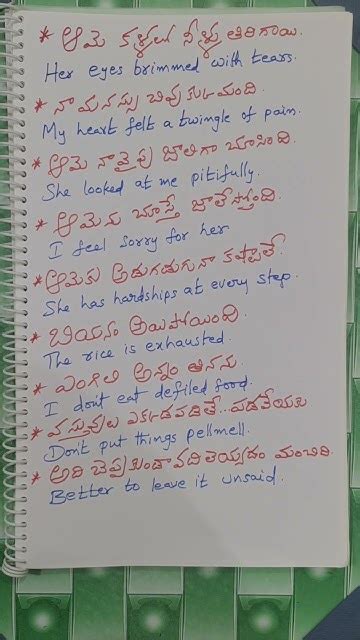 * ఆమె కళ్ళలు నీళ్ళు తిరిగాయి.
Her eyes brimmed with tears.
* నా మనస్సు చివుక్కుమంది.
My heart felt a twingle of pain.
* ఆమె నా వైపు జాలిగా చూసింది.
She looked at me pitifully.
* ఆమెను చూస్తే జాలేస్తోంది.
I feel sorry for her
* ఆమెకు అడుగడుగునా కష్టాలే.
She has hardships at every step.
* బియ్యం అయిపోయింది.
The rice is exhausted.
* ఎంగిలి అన్నం తినను
I don't eat defiled food.
* వస్తువులు ఎక్కడపడితే.. పడవేయకు
Don't put things pellmell.
* అది చెప్పకుండా వదిలెయ్యడం మంచిది.
Better to leave it unsaid.